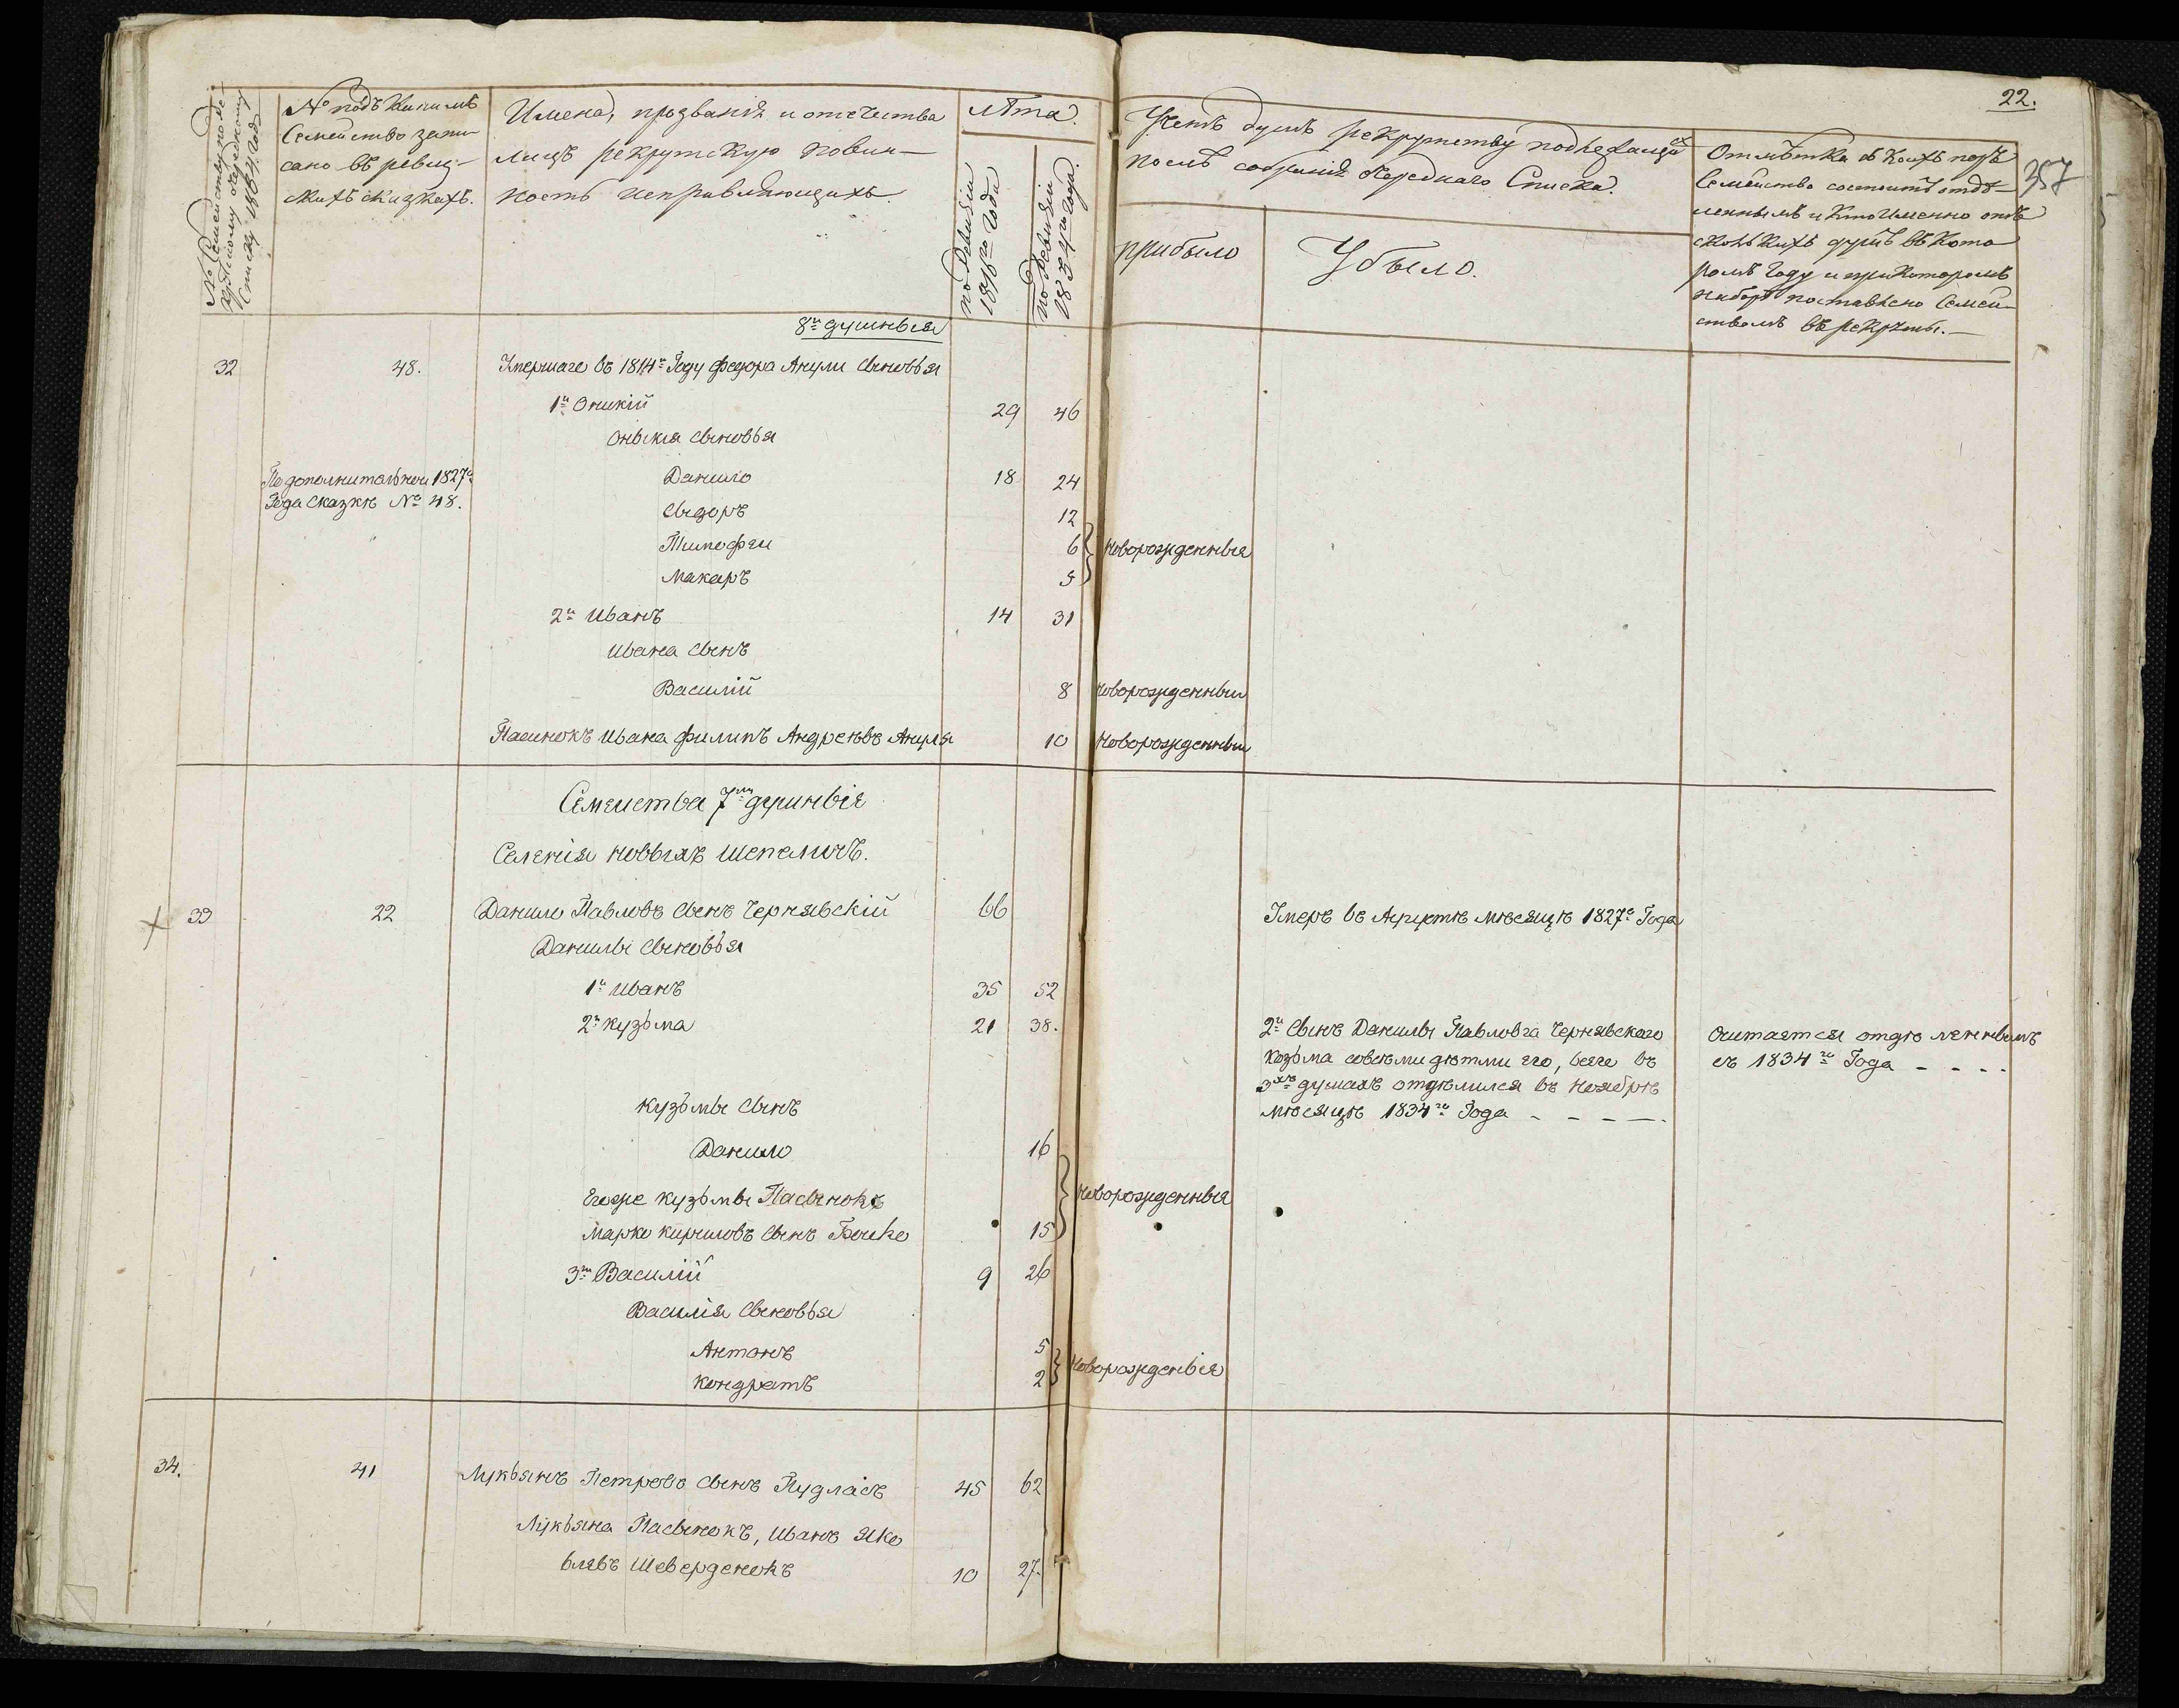 22.
357
№ Семейству по ме-
Списку 1834 год
№ подъ коимъ
Семейство запи-
сано въ ревиз-
скихъ сказкахъ.
Имена, прозванія и отечества
лицъ рекрутскую повин-
ность исправляющихъ.
лѣта.
по ревизіи
1816го года
по ревизіи
1834го года.
Учетъ душъ рекрутству подлежащихъ
послѣ собранія очереднаго Списка.
прибыло
Убыло.
Отмѣтка съ коихъ поръ
Семейство состоитъ отдѣ-
леннымъ и кто именно отъ
сколькихъ душъ въ кото
ромъ году и при которомъ
наборѣ поставлено Семей-
ствомъ въ рекруты.
8и душныя
32
48.
Умершаго въ 1814м Году федора Анули Сыновья
1й Оникій 29 46
Оныкія Сыновья
По дополнительной 1827го
Года Сказкѣ № 48.
Данило 18 24
Сыдоръ 12
Тимофеи 6
Макаръ 5
Новорожденныя
2й Иванъ 14 31
Ивана Сынъ
Василій 8 Новорожденныи
Пасинокъ Ивана филипъ Андреѣвъ Ануля 10 Новорожденныи
Семеиства 7ми душныя
Селенія новыхъ Шепеличъ.
33 22 Данило Павловъ Сынъ Чернявскій 66 Умеръ въ Августѣ мѣсяцѣ 1827го Года
Данилы Сыновья
1й Иванъ 35 52
2й Кузьма 21 38.
2й Сынъ Данилы Павловга Чернявскаго
Козьма совсѣми дѣтми его, всего въ
3хъ душахъ отдѣлился въ Ноябрѣ
мѣсяцѣ 1834го Года
Считается отдѣленнымъ
съ 1834го Года
Кузьмы Сынъ
Данило 16
Егоже Кузьмы Пасынокъ
Марко Кириловъ Сынъ Боико 15
Новорожденныя
3й Василій 9 26
Василія Сыновья
Антонъ 5
Кондратъ 2
Новорожденыя
34. 41 Лукьянъ Петровъ Сынъ Пудласъ 45 62
Лукьяна Пасынокъ, Иванъ Яко
влевъ Шеверденокъ 10 27.